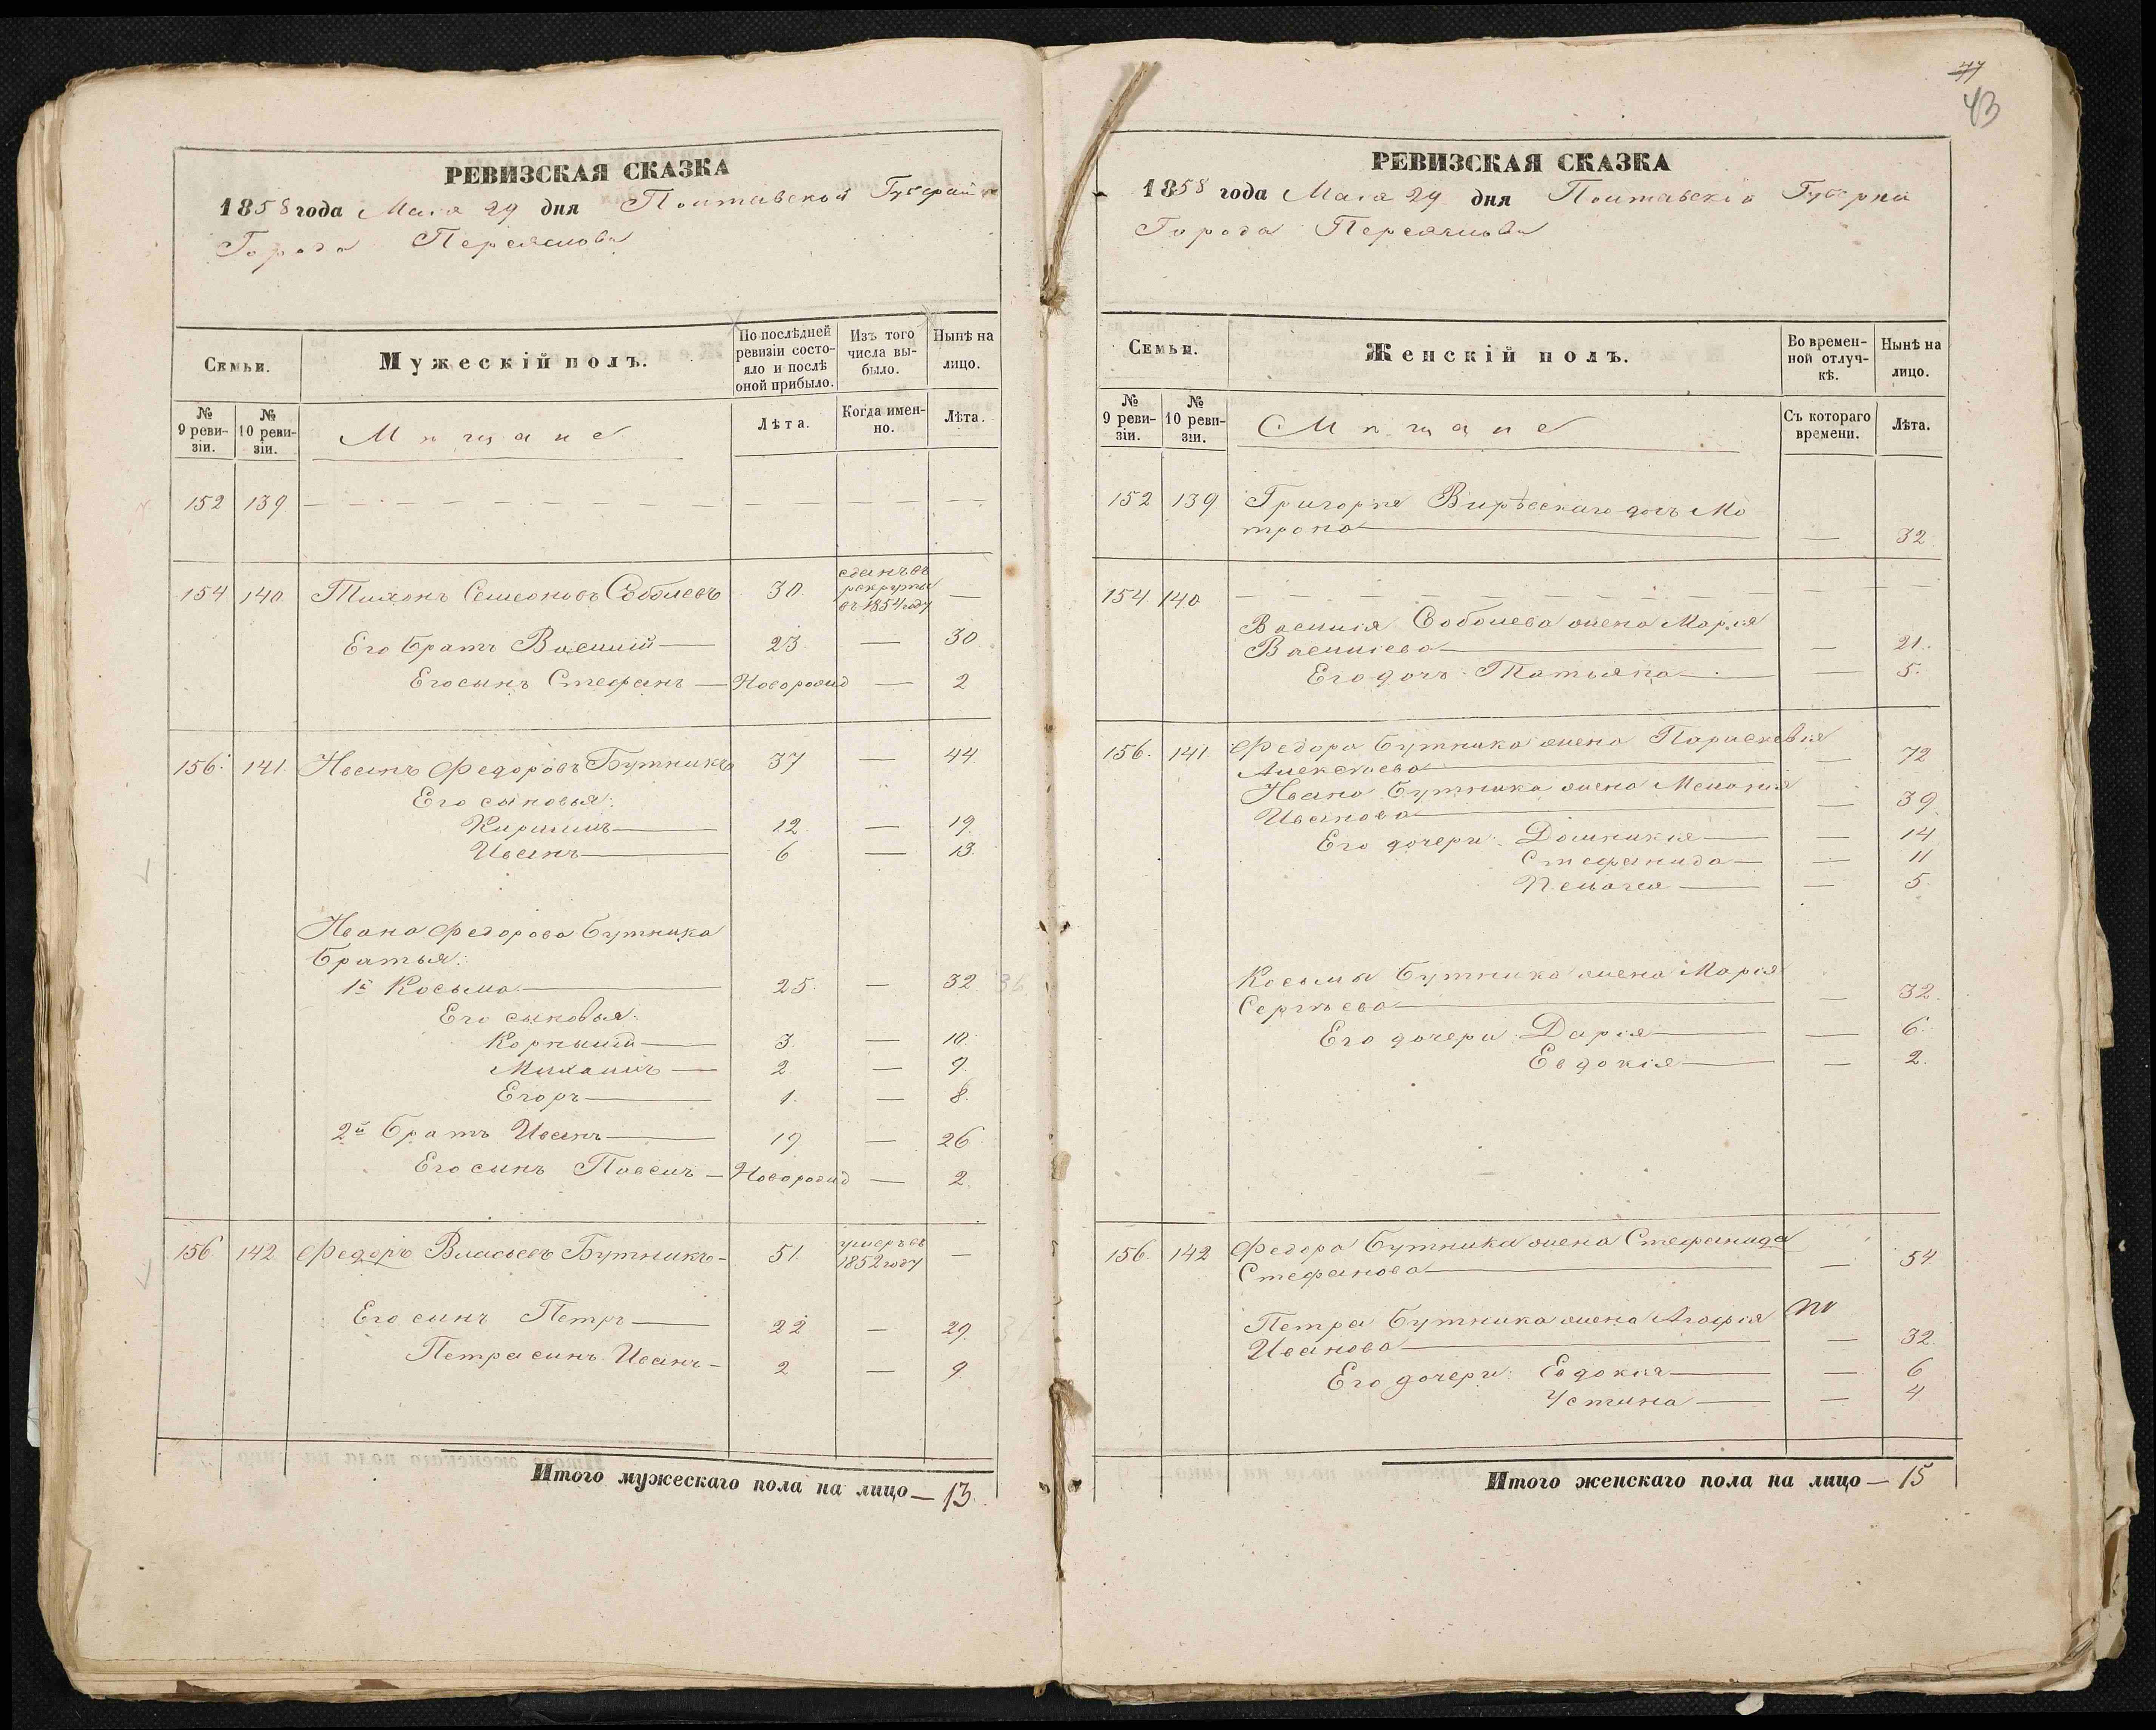 77
43
РЕВИЗСКАЯ СКАЗКА
1858 года Мая 29 дня Полтавской Губернии
Города Переяслова
Семьи.
Мужескій полъ.
По послѣдней ревизіи состояло и послѣ оной прибыло.
Изъ того числа выбыло.
Нынѣ на лицо.
№ 9 ревизіи.
№ 10 ревизіи.
Мѣщане
Лѣта.
Когда именно.
Лѣта.
152 139 — — — —
154 140 Тихонъ Семеоновъ Соболевъ 30 сданъ въ рекруты въ 1854 году —
Его братъ Василій — 23 — 30
Его сынъ Стефанъ — Новорожд — 2
156 141 Иванъ Федоровъ Бутникъ 37 — 44
Его сыновья:
Кирилъ — 12 — 19
Иванъ — 6 — 13
Ивана Федорова Бутника
братья:
1й Косьма — 25 — 32 36
Его сыновья:
Корнилій — 3 — 10
Михаилъ — 2 — 9
Егоръ — 1 — 8
2й братъ Иванъ — 19 — 26
Его сынъ Павелъ — Новорожд — 2
156 142 Федоръ Власьевъ Бутникъ — 51 умеръ въ 1852 году —
Его сынъ Петръ — 22 — 29
Петра сынъ Иванъ — 2 — 9
Итого мужескаго пола на лицо — 13
РЕВИЗСКАЯ СКАЗКА
1858 года Мая 29 дня Полтавской Губерни
Города Переяслова
Семьи.
Женскій полъ.
Во временной отлучкѣ.
Нынѣ на лицо.
№ 9 ревизіи.
№ 10 ревизіи.
Мѣщане
Съ котораго времени.
Лѣта.
152 139 Григорія дочь Мо
трона — — 32
154 140 — — — —
Василія Соболева жена Марія
Василіева — — 21
Его дочь Татьяна — — 5
156 141 Федора Бутника жена Параскевія
Алексѣева — — 72
Ивана Бутника жена Меланія
Иванова — — 39
Его дочери: Домникія — — 14
Стефанида — — 11
Пелагея — — 5
Косьмы Бутника жена Марія
Сергѣева — — 32
Его дочери: Дарія — — 6
Евдокія — — 2
156 142 Федора Бутника жена Стефанида
Стефанова — — 54
Петра Бутника жена Агафія
Иванова — — 32
Его дочери: Евдокія — — 6
Устина — — 4
Итого женскаго пола на лицо — 15